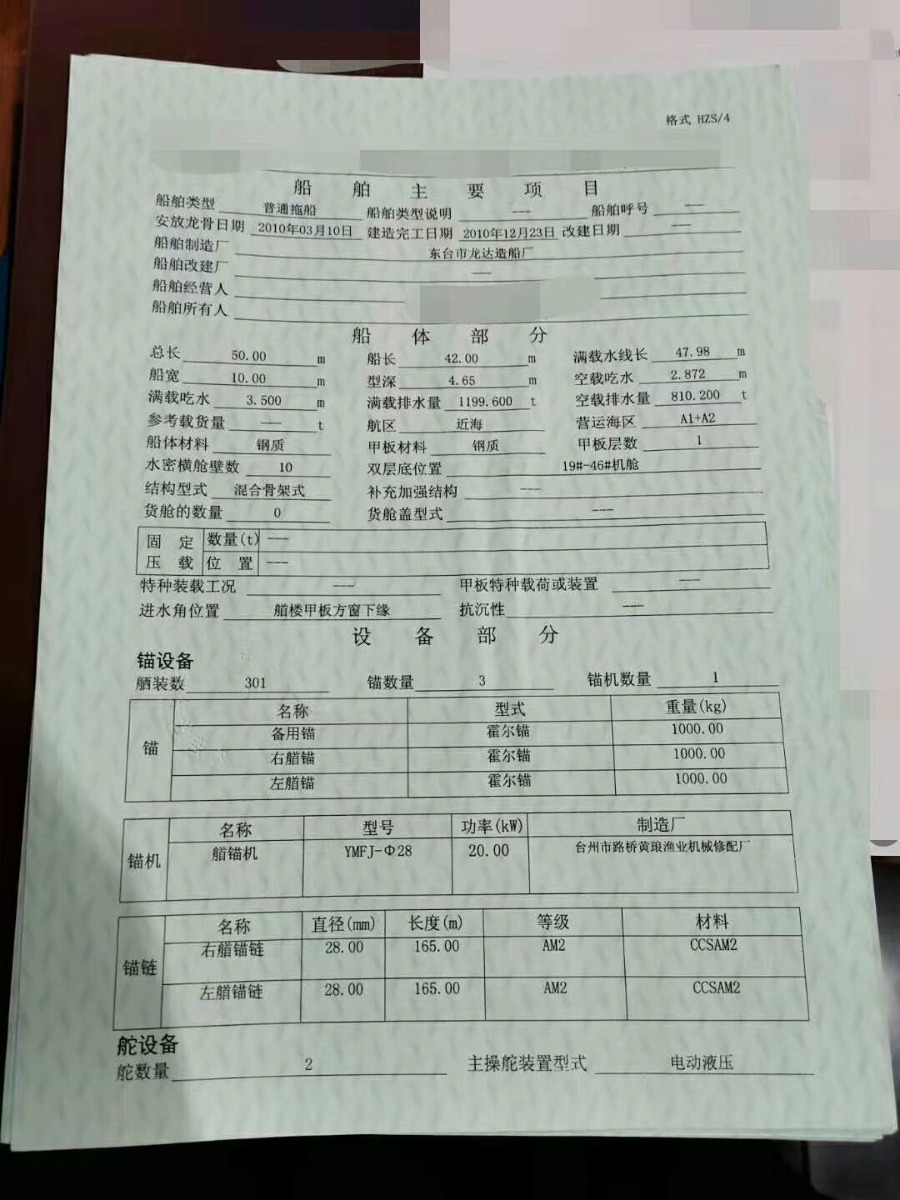 格式 HZS/4
船 舶 主 要 项 目
船舶类型 普通拖船 船舶类型说明 --- 船舶呼号 ---
安放龙骨日期 2010年03月10日 建造完工日期 2010年12月23日 改建日期 ---
船舶制造厂 东台市龙达造船厂
船舶改建厂 ---
船舶经营人
船舶所有人
船 体 部 分
总长 50.00 m 船长 42.00 m 满载水线长 47.98 m
船宽 10.00 m 型深 4.65 m 空载吃水 2.872 m
满载吃水 3.500 m 满载排水量 1199.600 t 空载排水量 810.200 t
参考载货量 --- t 航区 近海 营运海区 A1+A2
船体材料 钢质 甲板材料 钢质 甲板层数 1
水密横舱壁数 10 双层底位置 19#-46#机舱
结构型式 混合骨架式 补充加强结构 ---
货舱的数量 0 货舱盖型式 ---
固 定 数量(t) ---
压 载 位 置 ---
特种装载工况 --- 甲板特种载荷或装置 ---
进水角位置 艏楼甲板方窗下缘 抗沉性 ---
设 备 部 分
锚设备
舾装数 301 锚数量 3 锚机数量 1
名称 型式 重量(kg)
锚
备用锚 霍尔锚 1000.00
右艏锚 霍尔锚 1000.00
左艏锚 霍尔锚 1000.00
名称 型号 功率(kW) 制造厂
锚机 艏锚机 YMFJ-Φ28 20.00 台州市路桥黄琅渔业机械修配厂
名称 直径(mm) 长度(m) 等级 材料
锚链
右艏锚链 28.00 165.00 AM2 CCSAM2
左艏锚链 28.00 165.00 AM2 CCSAM2
舵设备
舵数量 2 主操舵装置型式 电动液压